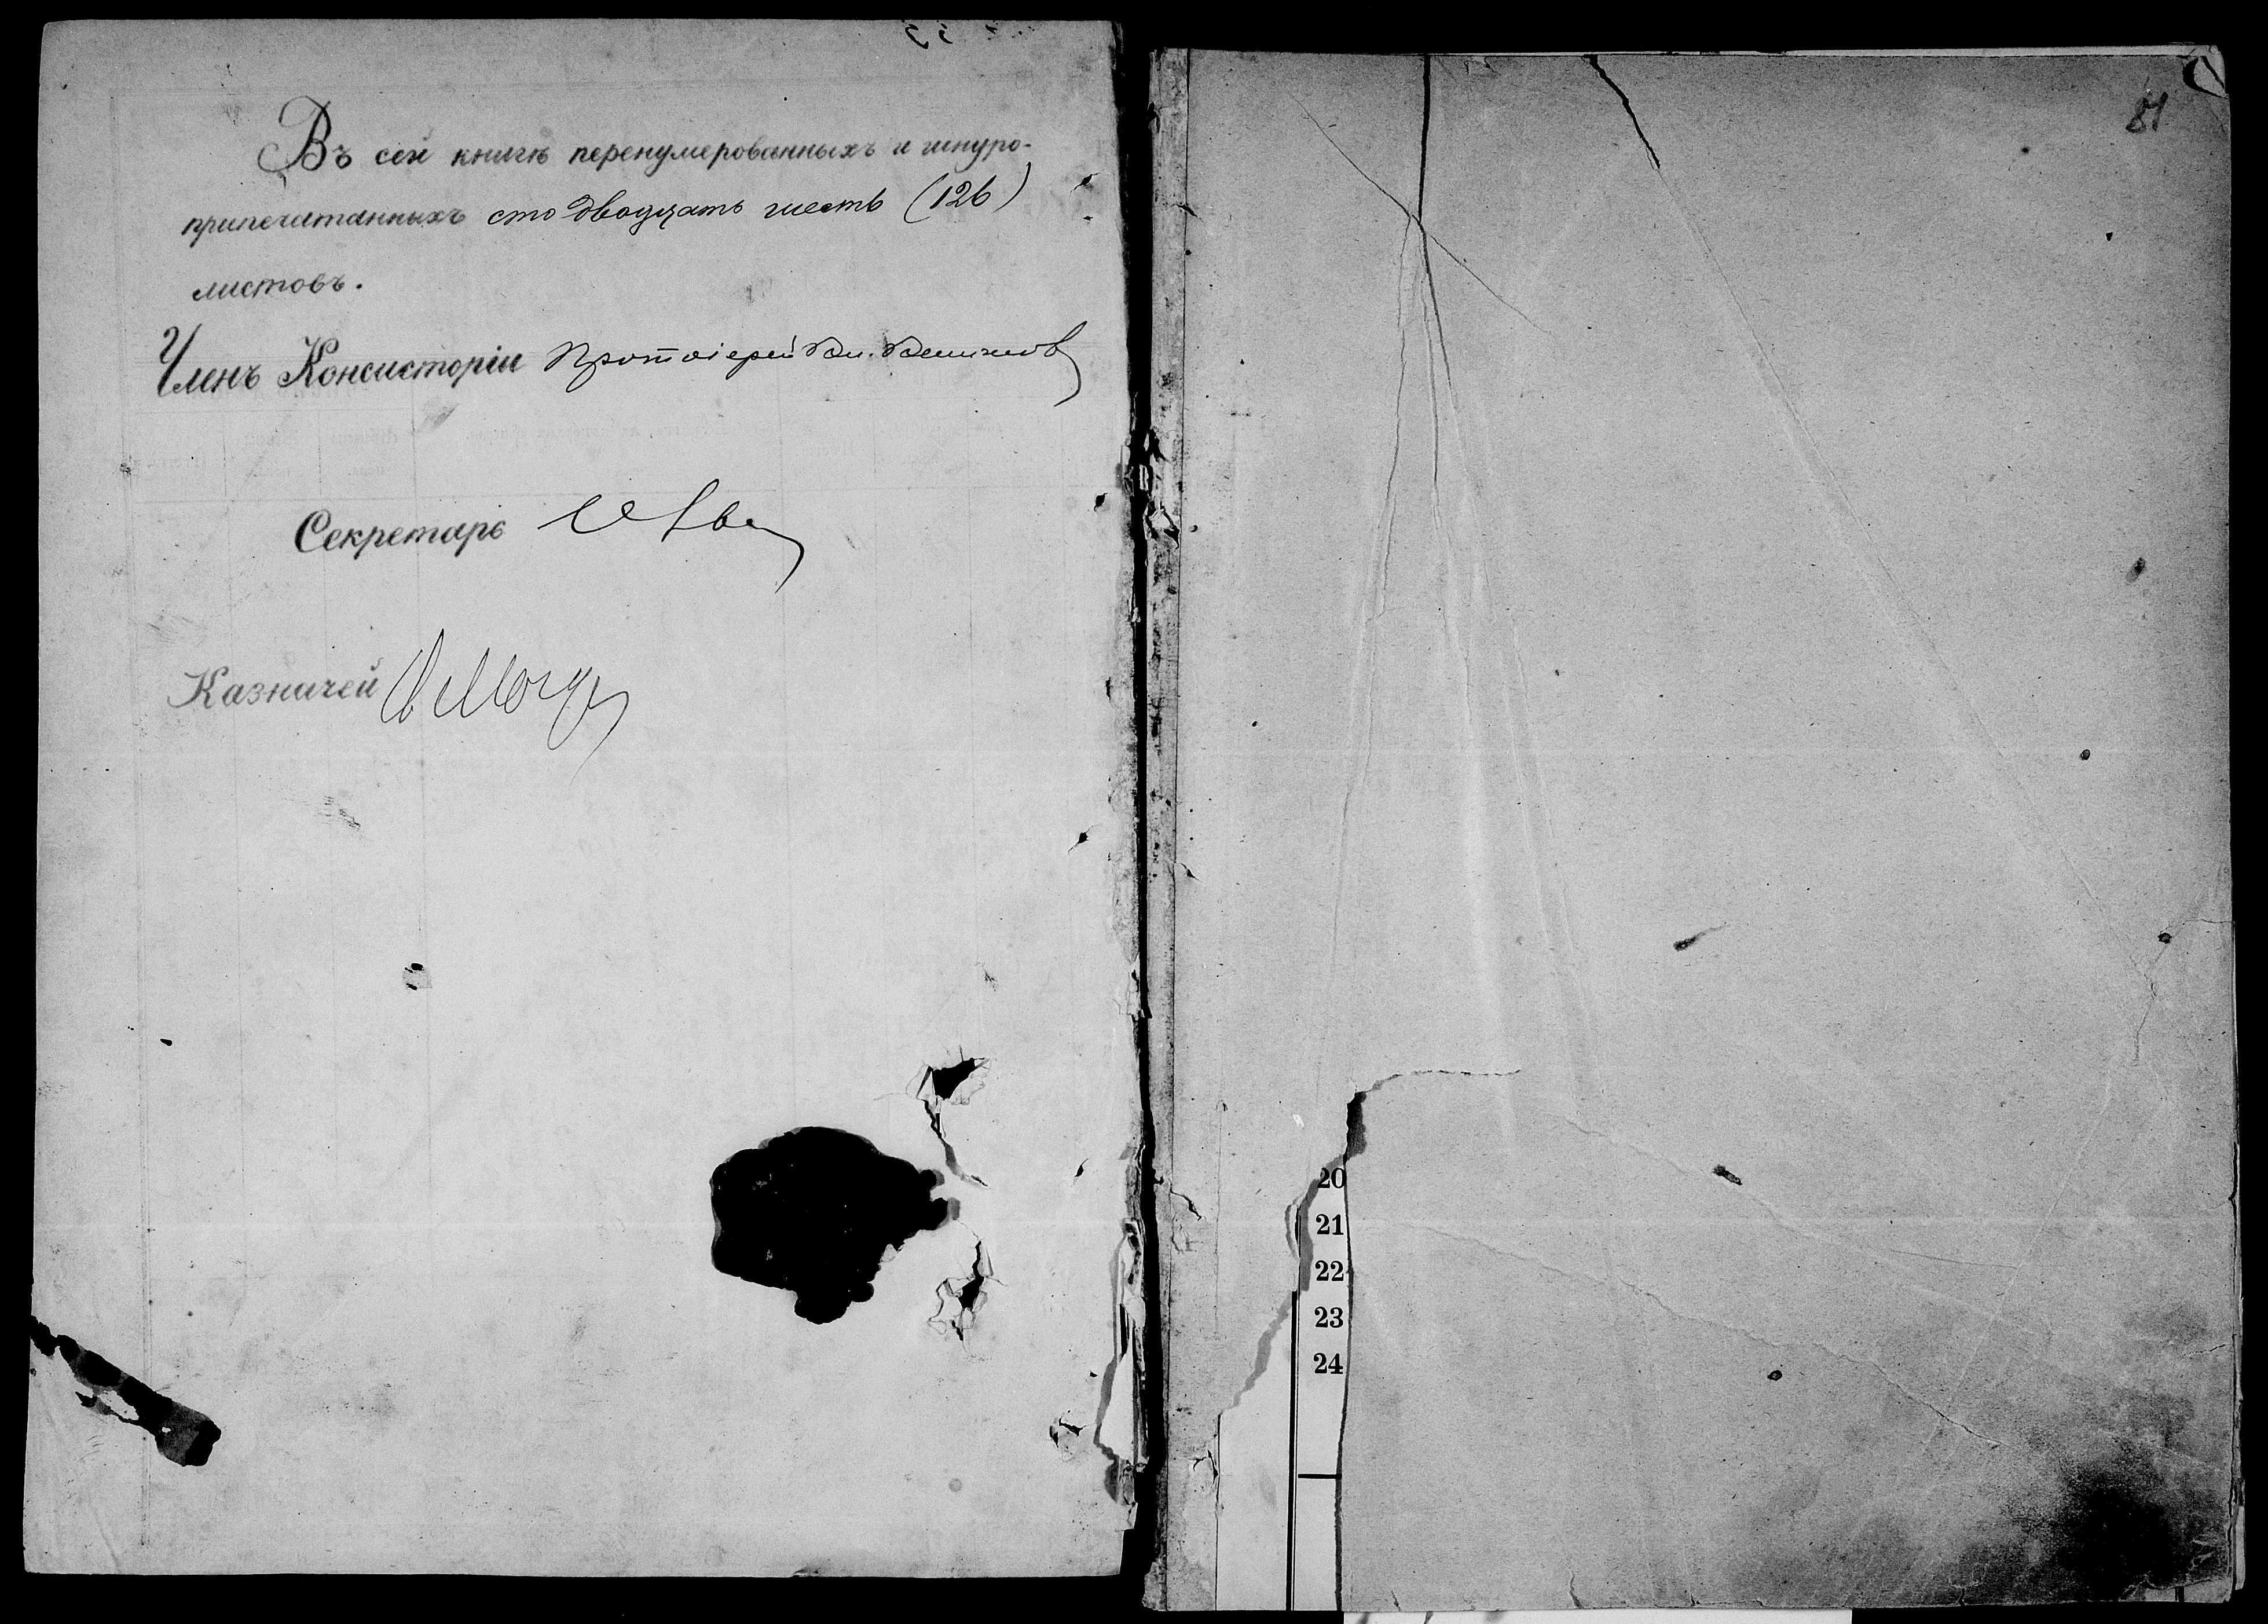 Въ сей книгѣ перенумерованныхъ и шнуро-
припечатанныхъ сто двадцать шесть (126)
листовъ.
Членъ Консисторіи Протоіерей Вл.
Секретарь
Казначей
81
20
21
22
23
24